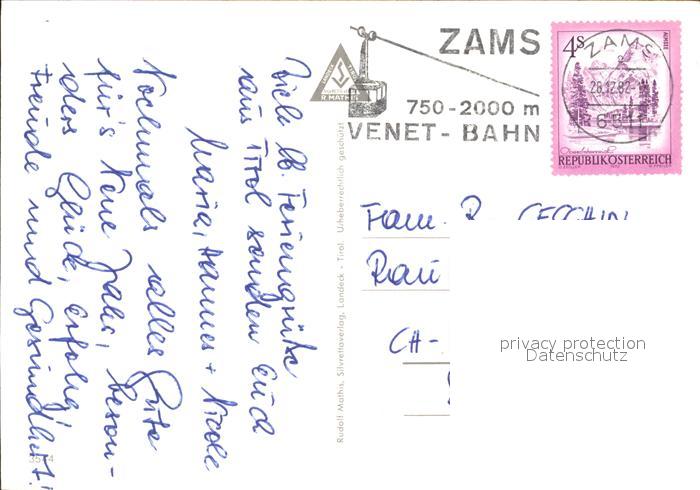 Viele lb. Feriengrüße
aus Tirol senden Euch
Maria, Hannes + Nicole
Nochmals alles Gute
für's Neue Jahr, beson-
ders Glück, Erfolg,
Freude und Gesundheit!
3544
R. MATHIS
Rudolf Mathis, Silvrettaverlag, Landeck - Tirol. Urheberrechtlich geschützt
ZAMS
750-2000 m
VENET-BAHN
4s
ALMSEE
ZAMS
28.12.82
6511
Oberösterreich
REPUBLIK ÖSTERREICH
Fam. R.
CH-
privacy protection
Datenschutz